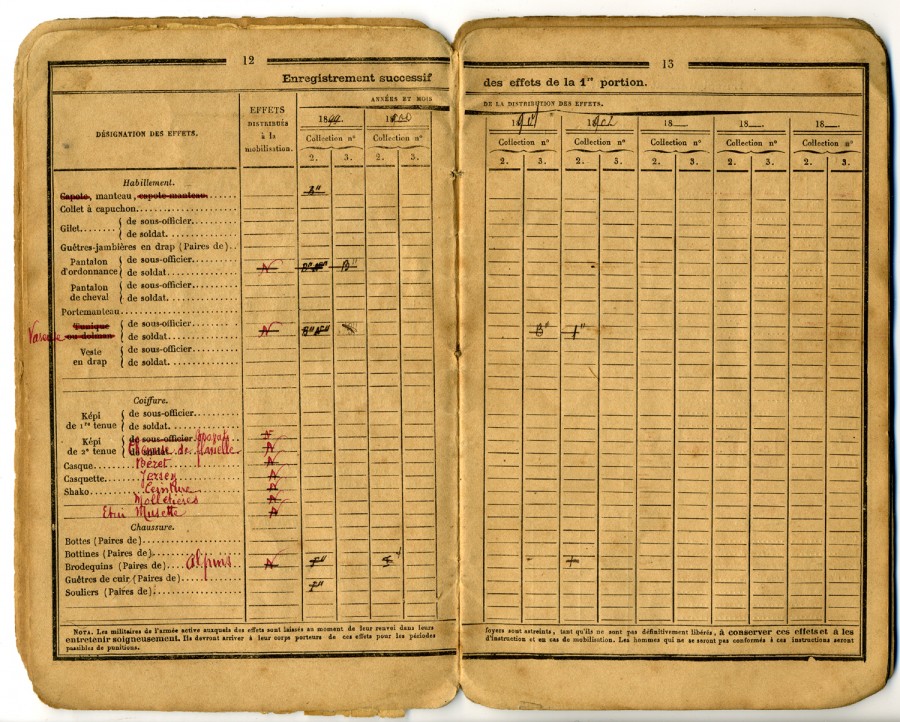 12
Enregistrement successif
DÉSIGNATION DES EFFETS.
EFFETS
DISTRIBUÉS
à la
mobilisation.
ANNÉES ET MOIS
1899. 1900
Collection nº Collection nº
2. 3. 2. 3.
Habillement.
Capote, manteau, capote-manteau
B"
Collet à capuchon
Gilet de sous-officier
de soldat
Guêtres-jambières en drap (Paires de)
Pantalon d'ordonnance de sous-officier
de soldat
N
B"
Pantalon de cheval de sous-officier
de soldat
Portemanteau
Tunique ou dolman de sous-officier
de soldat
N
Veste en drap de sous-officier
de soldat
Coiffure.
Képi de 1re tenue de sous-officier
de soldat
Képi de 2e tenue de sous-officier
de soldat
de flanelle
N
N
Casque
Béret
N
Casquette
Jersey
N
Shako
Ceinture
N
Molletières
N
Etui Musette
N
Chaussure.
Bottes (Paires de)
Bottines (Paires de)
Brodequins (Paires de) Alpins
N
Guêtres de cuir (Paires de)
Souliers (Paires de)
NOTA. Les militaires de l'armée active auxquels des effets sont laissés au moment de leur renvoi dans leurs
entretenir soigneusement. Ils devront arriver à leur corps porteurs de ces effets pour les périodes
passibles de punitions.
13
des effets de la 1re portion.
DE LA DISTRIBUTION DES EFFETS.
1901 1902 18 18 18
Collection nº Collection nº Collection nº Collection nº Collection nº
2. 3. 2. 3. 2. 3. 2. 3. 2. 3.
B"
foyers sont astreints, tant qu'ils ne sont pas définitivement libérés, à conserver ces effets et à les
d'instruction et en cas de mobilisation. Les hommes qui ne se seront pas conformés à ces instructions seront